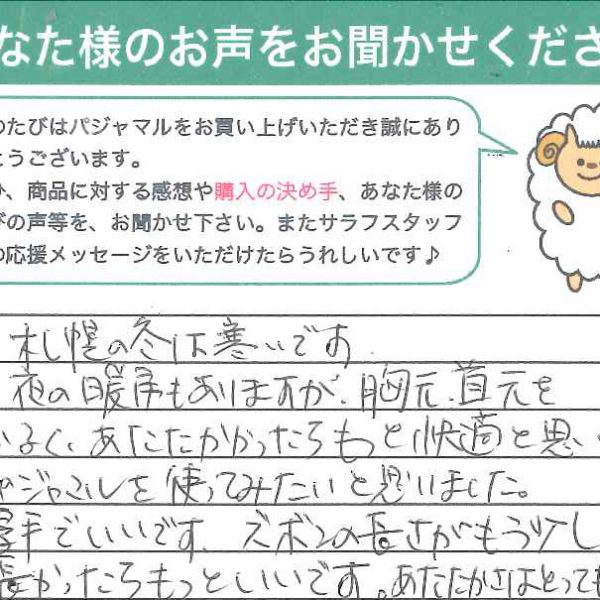 なた様のお声をお聞かせくださ
のたびはパジャマルをお買い上げいただき誠にあり
とうございます。
、商品に対する感想や購入の決め手、あなた様の
びの声等を、お聞かせ下さい。またサラフスタッフ
の応援メッセージをいただけたらうれしいです♪
札幌の冬は寒いです
夜の暖房もありますが、胸元、首元を
るく、あたたかかったらもっと快適と思い
ジャマルを使ってみたいと思いました。
厚手でいいです。ズボンの長さがもう少し
長かったらもっといいです。あたたかさはとっても